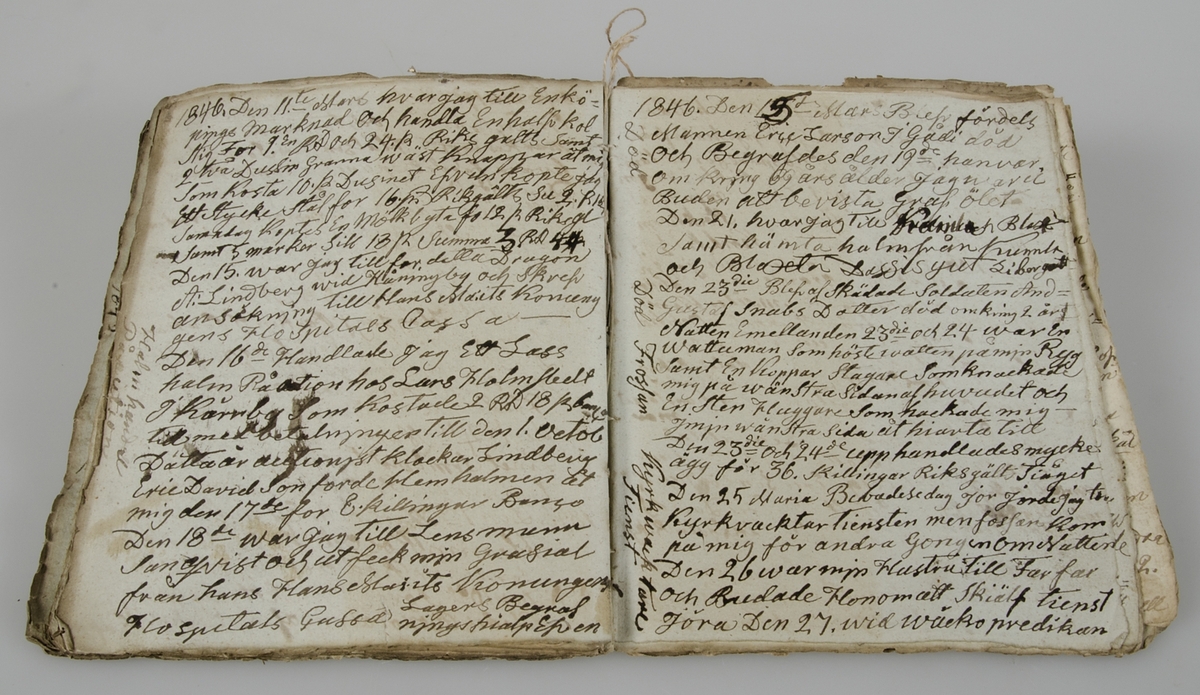 1846. Den 11te Mars hvar jag till Enkö-
pings Marknad Och handla En half kol
stig For 9 en RD och 24.k. Riks gälts Samt
2 två Dussin granna wäst knappar åt mig
Som kosta 10.k Dusinet Efven kopte Jag
Ett stycke för 16.k Riksgälts
En Mölkbytta för 12.k Riksgl
Samt 5 marker Sill 13/2 Summa 3 RD 44
Den 15. war jag till för della Dragon
A: Lindberg wid Hänningby och Skref
ansökning till Hans Maits Konung
gens Hospitals Cassa
Den 16de Handlade Jag Ett Lass
halm På action hos Lars Holmstedt
J Kärrby Som kostade 2 RD 18 k
till med betalningen till den 1. Octob
Dätta är auctionist klockar Lindberg
Eric David Son forde hem halmen åt
mig den 17de for 6. skillingar Banco
Den 18de war jag till Lensmann
Sangvist och ut feck min Grasial
från hans Hans Maits Konungens
Hospitals Cassa Lagers Begraf
ningshialp Efven
Halm hund
1846. Den Mars Blef fördels
Mannen Eric Larson J Gädi död
Och Begrafdes den 19de han var
om kring års ålder Jag war
Buden att bevista Graf ölet
Den 21. hvar jag till
Samt hämta halm från Kumla
och
Den 23die Blef af Skädade Soldaten And-
Gustaf Snabs Dotter död omkring 2 år
Natten Emellanden 23die och 24 war En
Wattuman Som höste watten på min Ryg
Samt En koppar Slagare Som knackade
mig på wänstra Sidan af huvudet och
En Sten Huggare Som hackade mig
J min wänstra Sida åt hiarta till
Den 23die och 24de upp handlades mycke
ägg för 36. Skillingar Riksgält Tiuget
Den 25 Maria Bebadelsedag For Jorde jag
Kyrkvacktar tiensten men fossan kom
på mig för andra Gongen om Natten
Den 26 war min Hustru till Far far
och Budade Honom att Skiälf tienst
Jöra Den 27. wid wäcko predikan
Död
Döa
Frossan
Kyrkvacktare
Tienst